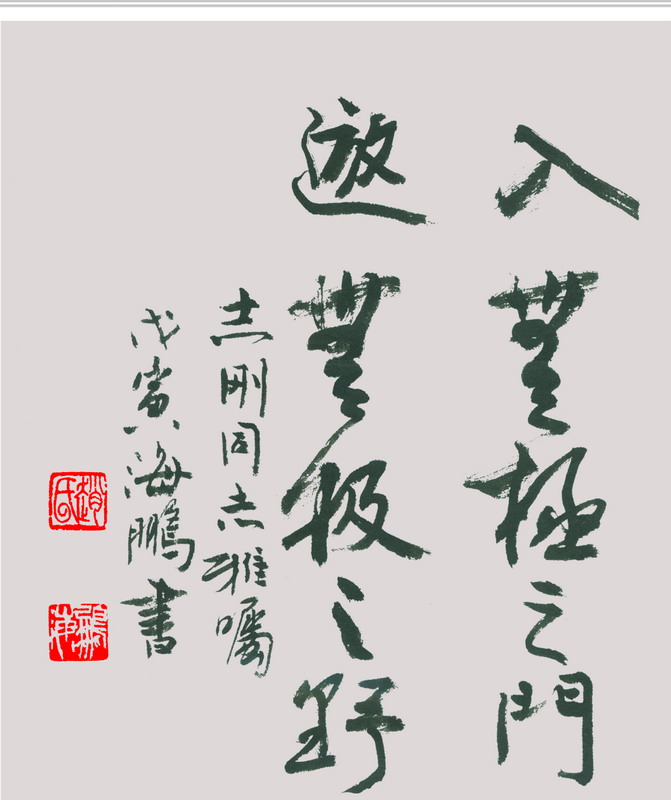 入無極之門
遊無极之野
志剛同志雅囑
戊寅海鵬書
趙氏
海鵬